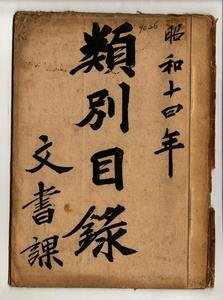 昭和十四年
類別目錄
文書課
9026